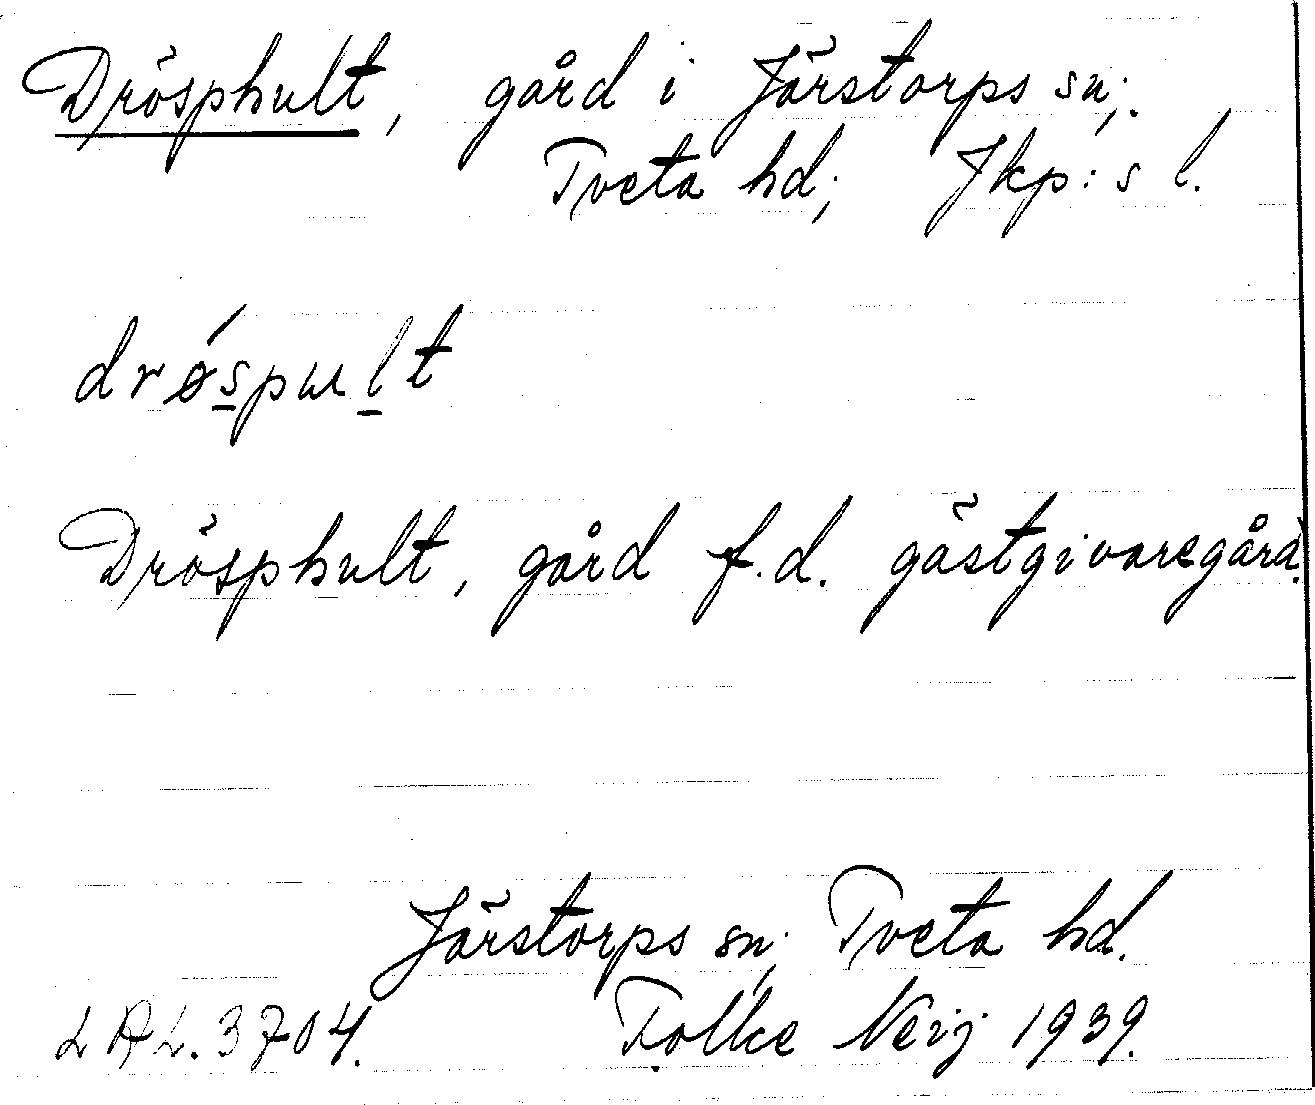 Drösphult, gård i Järstorps sn;.
Tveta hd; Jkp:s l.
drǿspult
Drösphult, gård f.d. gästgivaregård.
Järstorps sn; Tveta hd.
LAL. 3704. Folke Neij 1939.